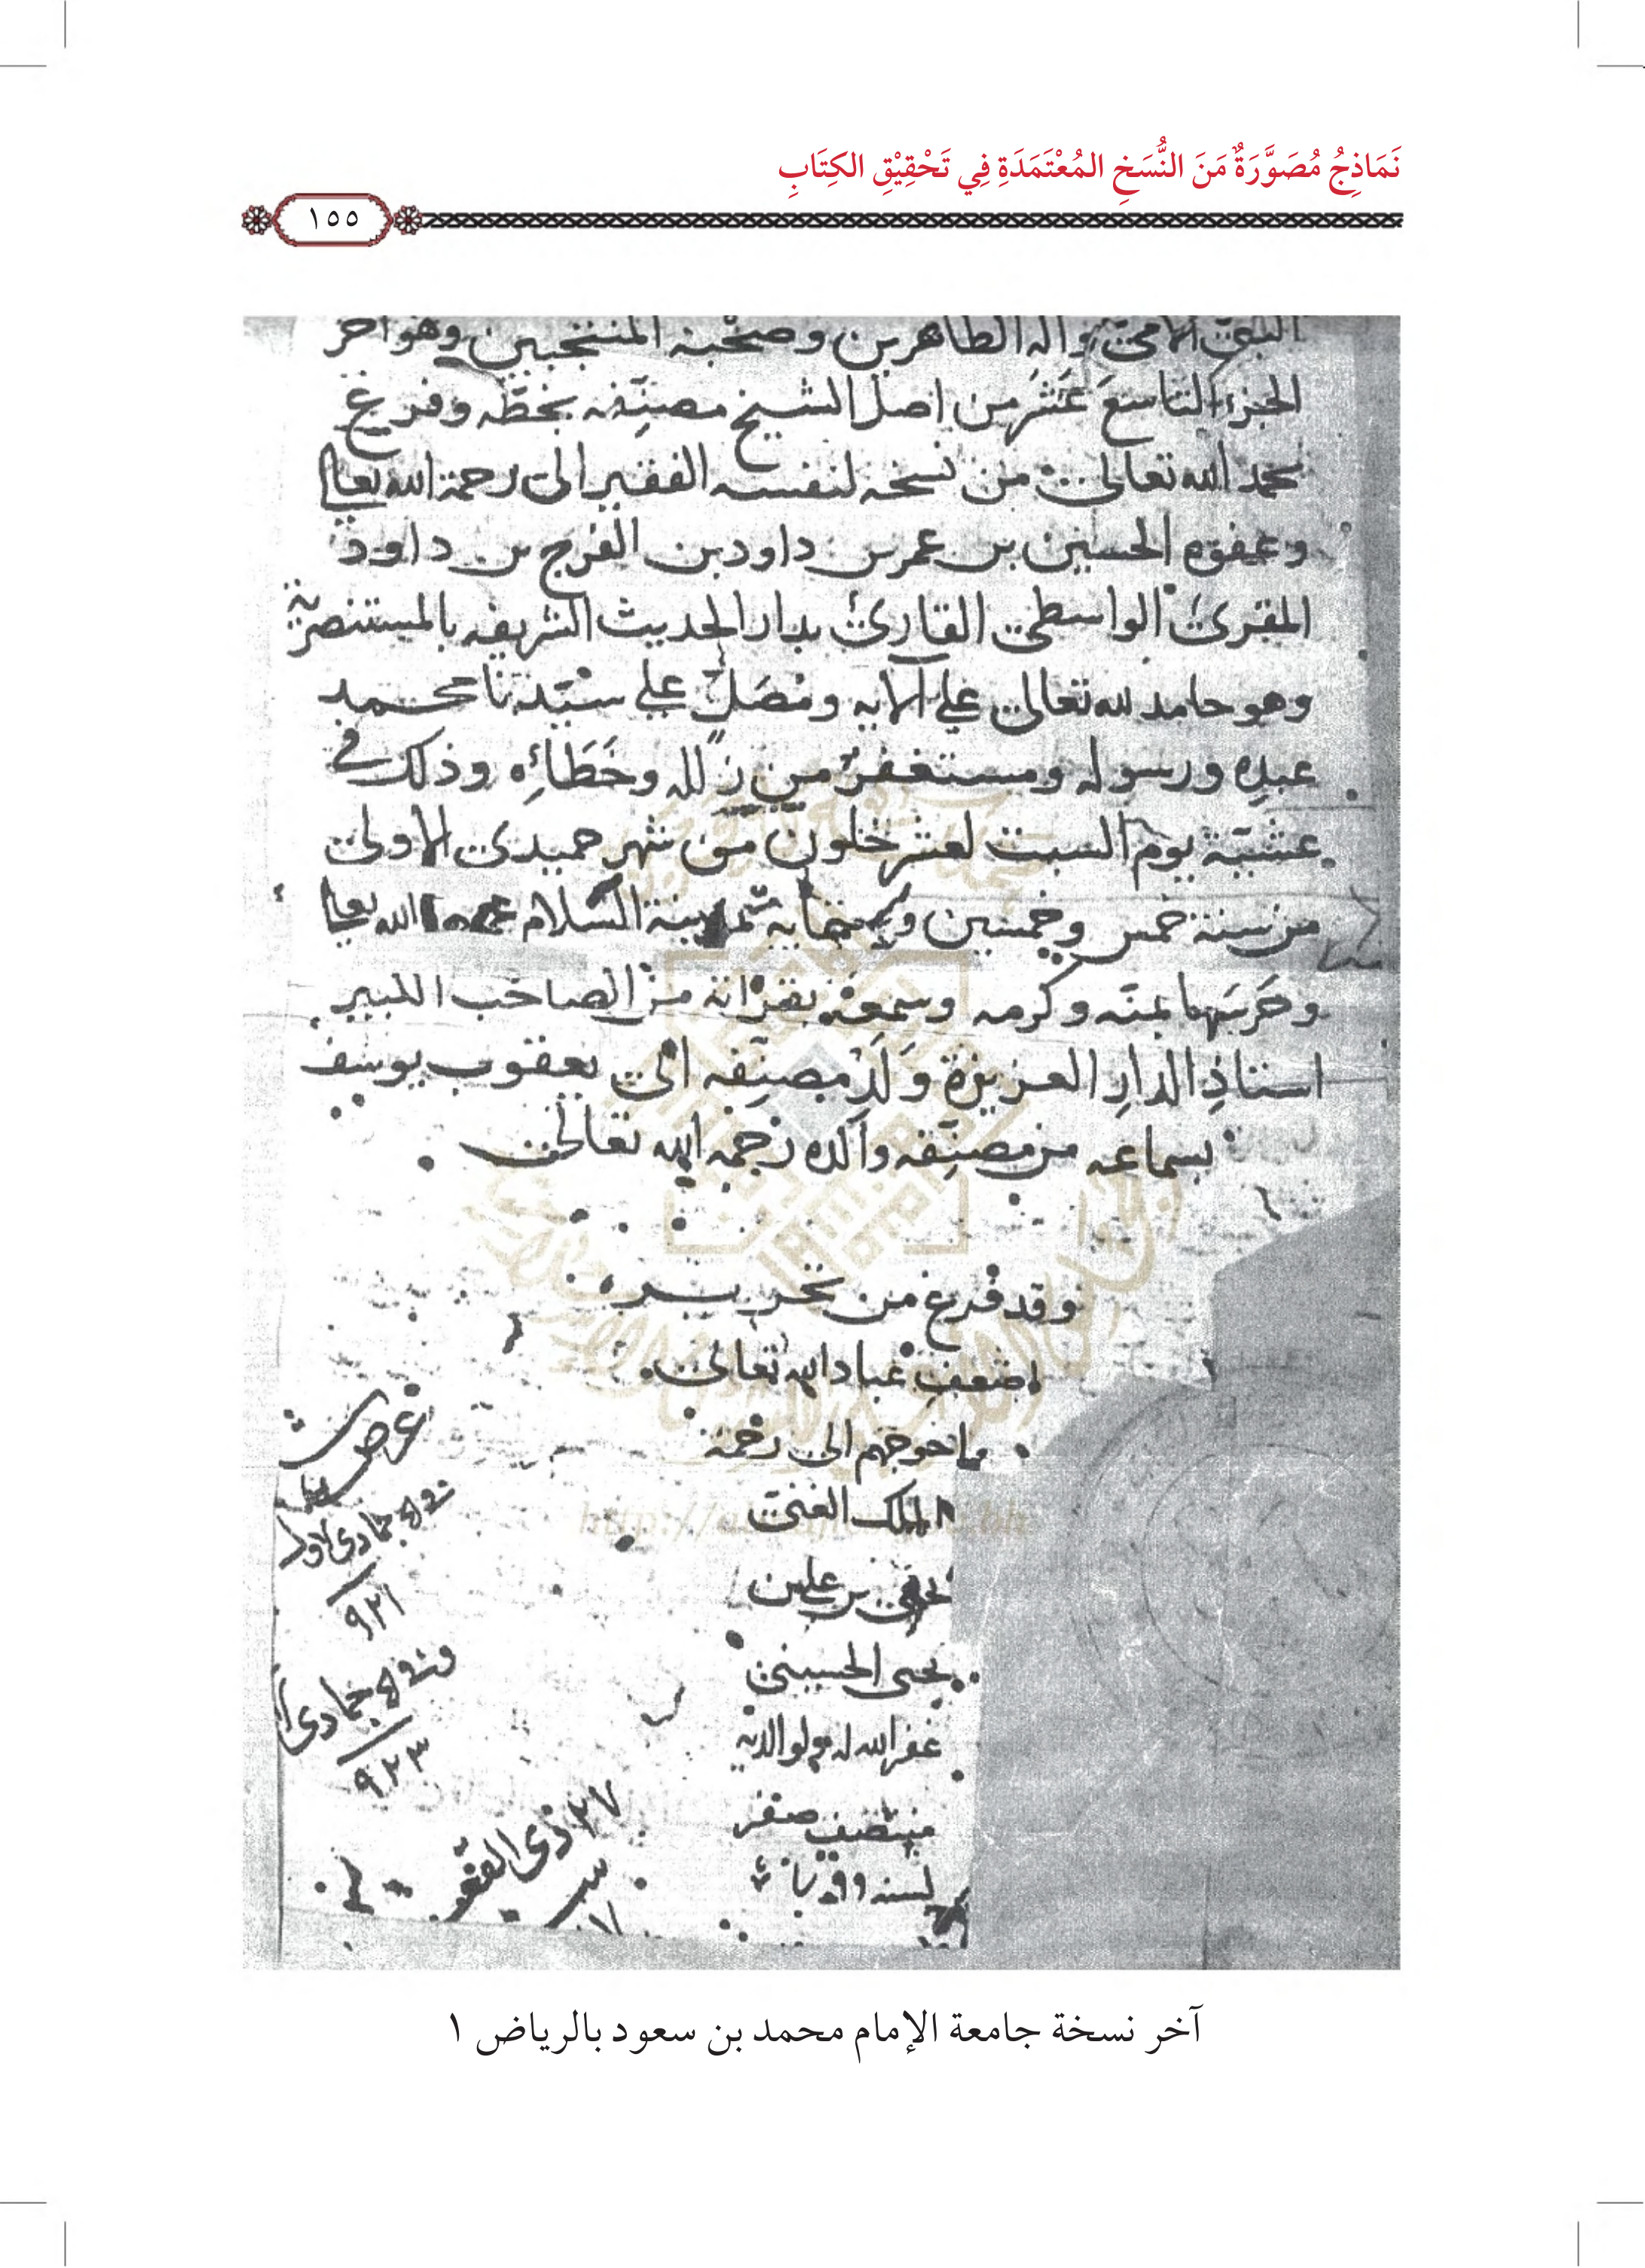 نَمَاذِجُ مُصَوَّرَةٌ مَنَ النُّسَخِ المُعْتَمَدَةِ فِي تَحْقِيْقِ الكِتَابِ
١٥٥
النبي الامي واله الطاهرين وصحبه المنتجبين وهو اخر
الجزء التاسعَ عَشَر من اصل الشيخ مصنِّفه بخطّه وفرغ
بحمد الله تعالى من نسخه لنفسه الفقير الى رحمة الله تعالى
وعفوه الحسين بن عمر بن داود بن الفرج بن داود
المقرئ الواسطي القارئ بدار الحديث الشريفه بالمستنصرية
وهو حامد لله تعالى على آلايه ومُصَلٍّ على سيّدنا محمد
عبده ورسوله ومستغفرٌ من زلله وخَطَائِه وذلك في
عشيّة يوم السبت لعشر خلون من شهر حميدى الاولى
من سنة خمس وخمسين وستمايه بمدينة السّلام عمرها الله تعالى
وحَرسَها بمنّه وكرمه وسمعه بقرااته من الصاحب الكبير
استاذِ الدارِ العزيزة وَلَدِ مصنِّفه ابى يعقوب يوسف
بسماعه من مصنِّفه والده رحمه الله تعالى
وقد فرغ من تحريره
اضعف عباد الله تعالى
واحوجهم الى رحمة
الملك الغني
بن علي بن
يحيى الحسيني
غفر الله له ولوالديه
منتصف صفر
لسنه
عرض
جمادى الاول
٩٢١
جمادى
٩٢٣
٢٧ ذى القعد
آخر نسخة جامعة الإمام محمد بن سعود بالرياض ١